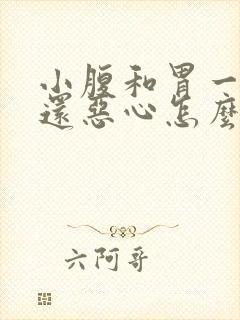 小腹和胃一
還惡心怎麽
六阿哥